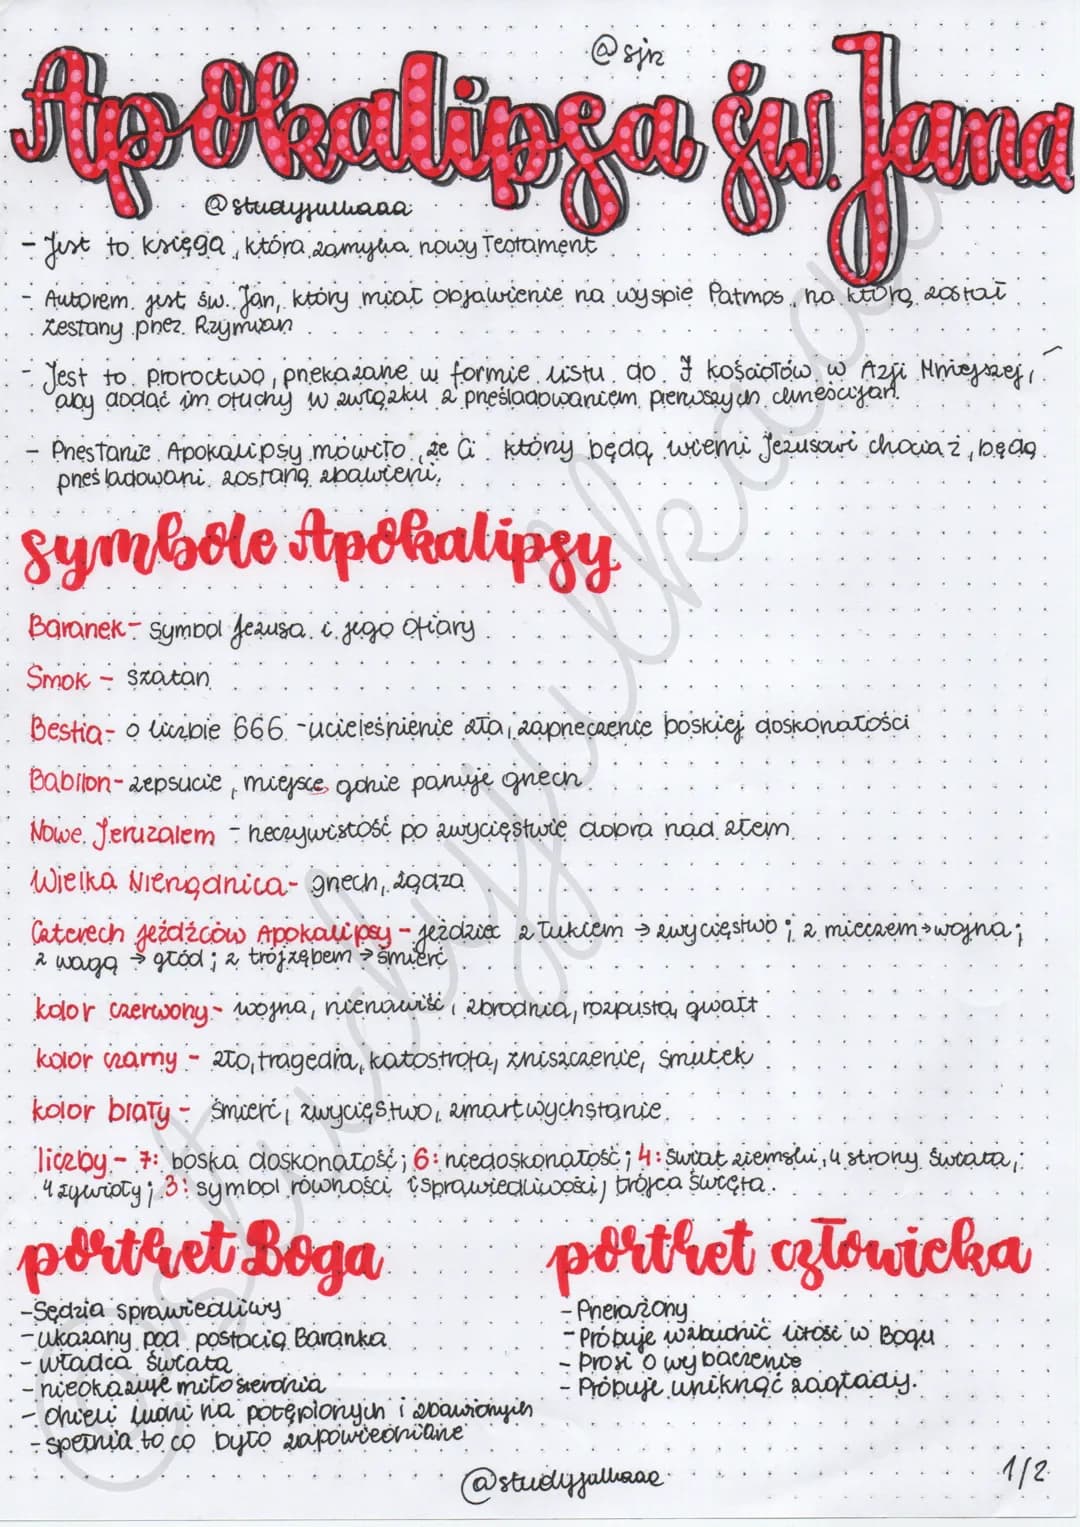 @sjr
Apokalipsa św. Jana
@studyjulkaaa
- Jest to księga, która zamyka nowy Testament
- Autorem jest św. Jan, który miał objawienie na wyspie Patmos, na którą został
zesłany przez Rzymian
- Jest to proroctwo, przekazane w formie listu do 7 kościołów w Azji Mniejszej,
aby dodać im otuchy w związku z prześladowaniem pierwszych chrześcijan.
- Przesłanie Apokalipsy mówiło, że Ci który będą wierni Jezusowi chociaż, będą
prześladowani zostaną zbawieni.
symbole Apokalipsy
Baranek - symbol Jezusa i jego Ofiary
Smok - szatan
Bestia - o liczbie 666 - ucieleśnienie zła, zaprzeczenie boskiej doskonałości
Babilon - zepsucie, miejsce gdzie panuje grzech
Nowe Jeruzalem - rzeczywistość po zwycięstwie dobra nad złem
Wielka Nierządnica - grzech, żądza
Czterech jeźdźców Apokalipsy - jeździec z łukiem → zwycięstwo; z mieczem → wojna;
z wagą → głód; z trójzębem → śmierć
kolor czerwony - wojna, nienawiść, zbrodnia, rozpusta, gwałt
kolor czarny - zło, tragedia, katastrofa, zniszczenie, smutek
kolor biały - śmierć, zwycięstwo, zmartwychstanie
liczby - 7: boska doskonałość; 6: niedoskonałość; 4: świat ziemski, 4 strony świata,
4 żywioły; 3: symbol równości i sprawiedliwości, trójca święta.
portret Boga
- Sędzia sprawiedliwy
- ukazany pod postacią Baranka
- władca świata
- nieokazuje miłosierdzia
- dzieli ludzi na potępionych i zbawionych
- spełnia to co było zapowiedziane
portret człowieka
- Przerażony
- Próbuje wzbudzić litość w Bogu
- Prosi o wybaczenie
- Próbuje uniknąć zagłady.
@studyjulkaaa
1/2
@studyjulkaaa